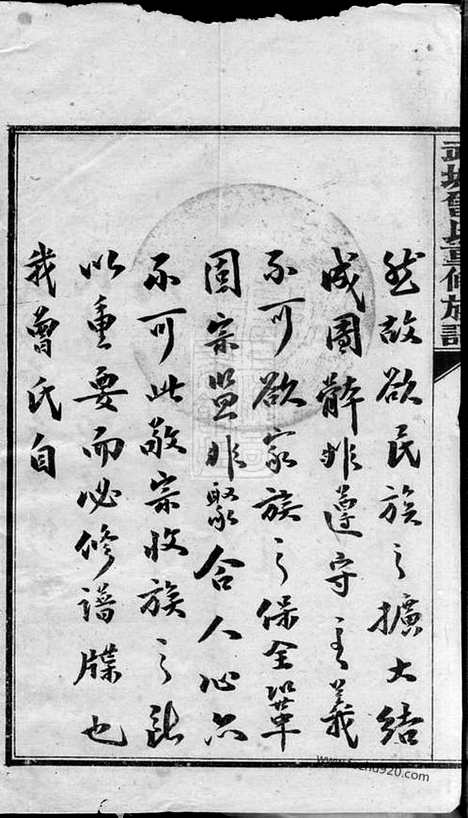 武城曾氏重修族譜
然故欲民族之擴大結
成團體非遵守主義
不可欲家族之保全鞏
固宗盟非聚合人心亦
不可此敬宗收族之所
以重要而必修譜牒也
我曾氏自